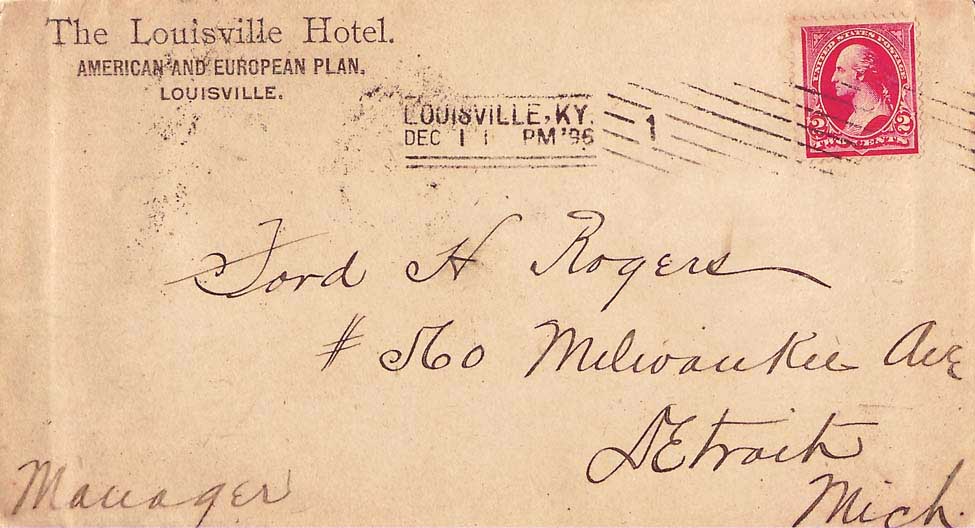 The Louisville Hotel.
AMERICAN AND EUROPEAN PLAN.
LOUISVILLE.
LOUISVILLE, KY.
DEC 11 PM '96
1
UNITED STATES POSTAGE
2 2
TWO CENTS
Ford H Rogers
# 560 Milwaukee Ave
Detroit
Mich.
Manager